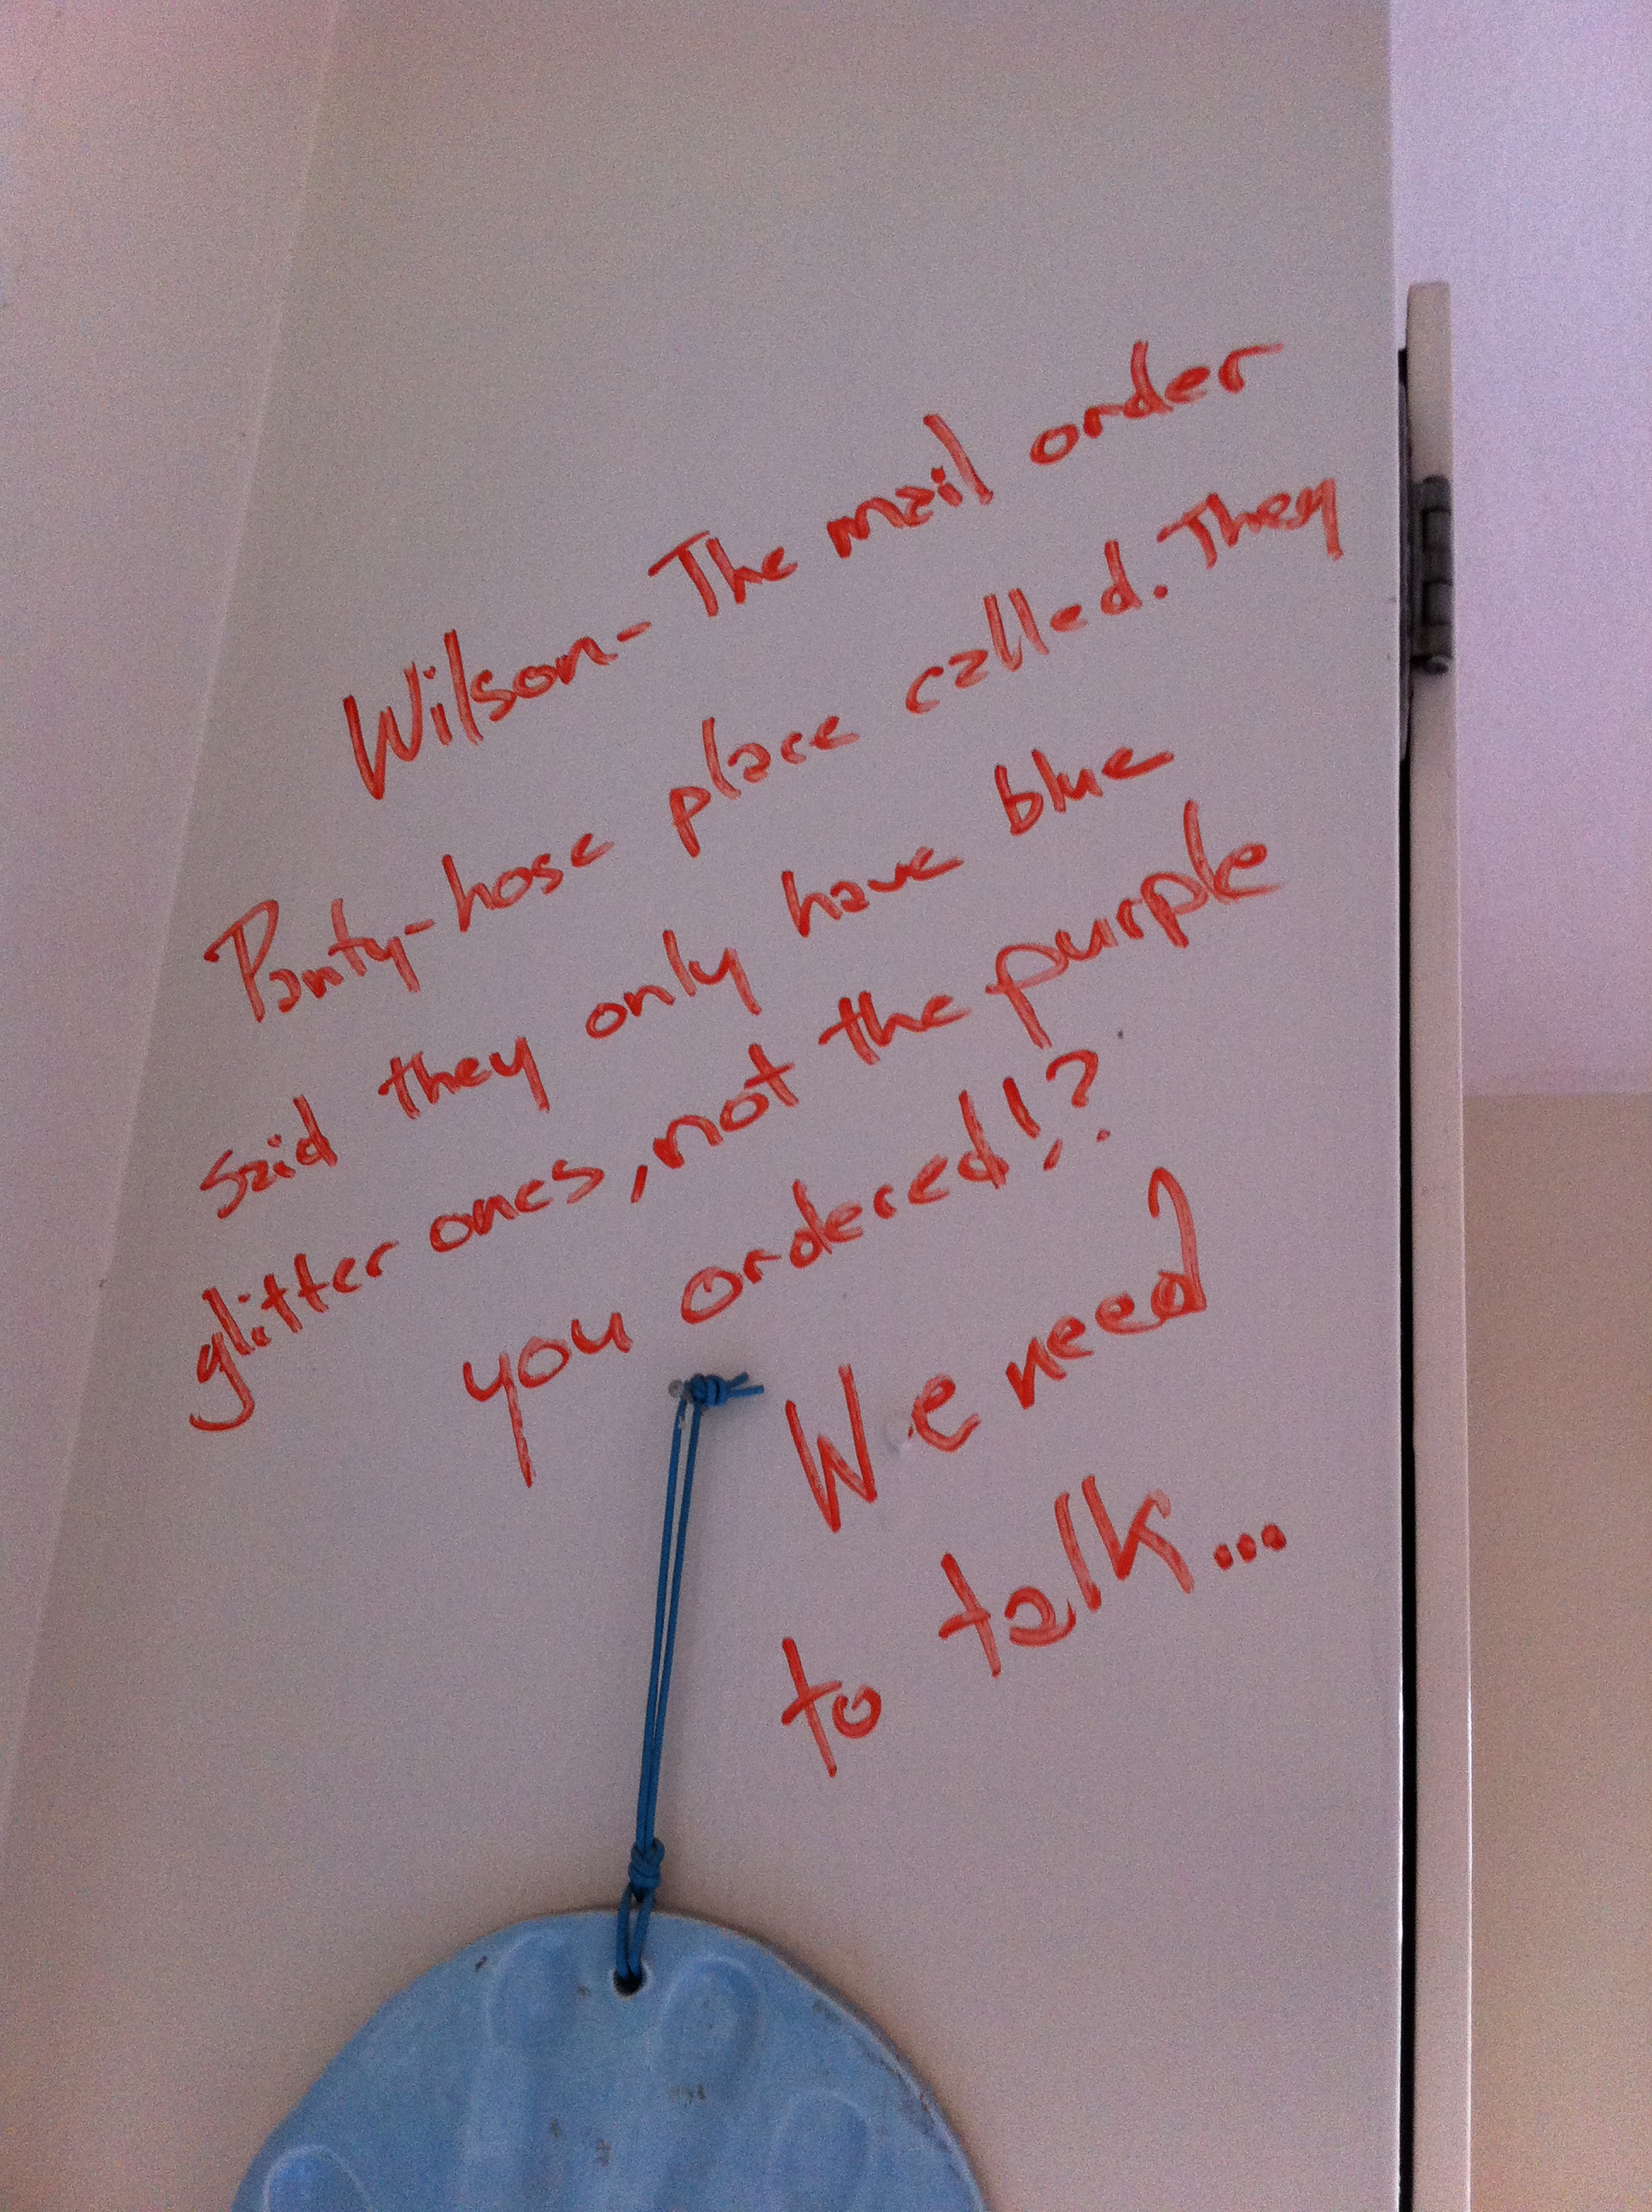 Wilson - The mail order
Panty-hose place called. They
said they only have blue
glitter ones, not the purple
you ordered!?
We need
to talk...